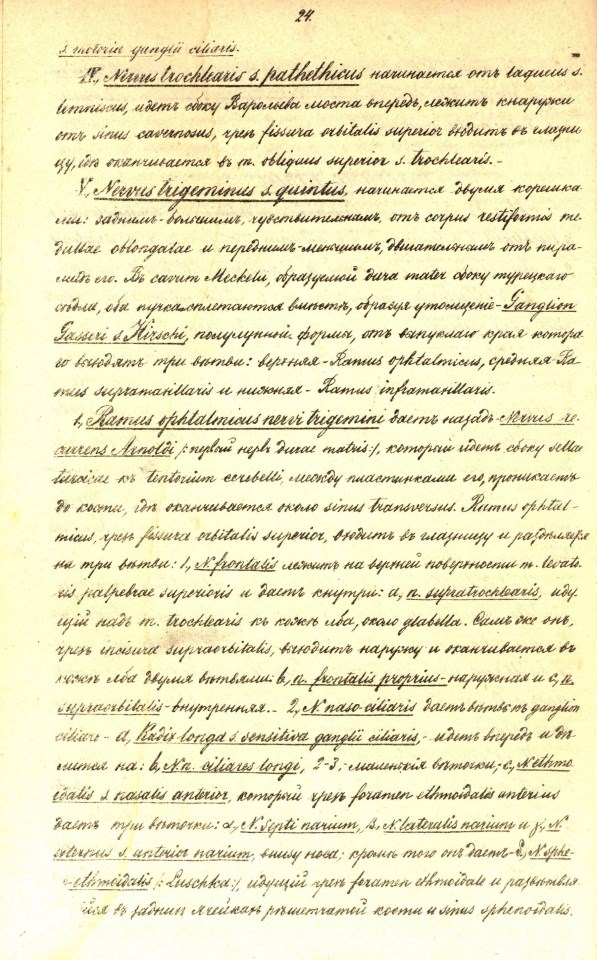 24.
s. motoriae ganglii ciliaris.
IV, Nervus trochlearis s. pathethicus начинается отъ laqueus s.
lemniscus, идетъ сбоку Варольева моста впередъ, лежитъ кнаружи
отъ sinus cavernosus, чрез fissura orbitalis superior входитъ въ глазни
цу, гдѣ оканчивается въ m. obliquus superior s. trochlearis. -
V, Nervus trigeminus s. quintus, начинается двумя корешка
ми: заднимъ-большимъ, чувствительнымъ, отъ corpus restiformis me
dullae oblongatae и переднимъ-меньшимъ, двигательнымъ отъ пира
мидъ его. Въ cavum Meckelii, образуемой dura mater сбоку турецкаго
сѣдла, оба пучка сплетаются вмѣстѣ, образуя утолщенiе - Ganglion
Gasseri s. Hirschi, полулунной формы, отъ выпуклаго края котора
го выходятъ три вѣтви: верхняя - Ramus ophtalmicus, средняя Ra-
mus supramaxillaris и нижняя - Ramus inframaxillaris.
1, Ramus ophtalmicus nervi trigemini даетъ назадъ - Nervus re-
currens Arnoldi /: первый нервъ durae matris:/, который идетъ сбоку sellae
turcicae къ tentorium cerebelli, между пластинками его, проникаетъ
до кости, гдѣ оканчивается около sinus transversus. Ramus ophtal-
micus, чрез fissura orbitalis superior, входитъ въ глазницу и раздѣляется
на три вѣтви: 1, N frontalis лежитъ на верхней поверхности m. levato
ris palpebrae superioris и даетъ кнутри: a, n. supratrochlearis, иду
щiй надъ m. trochlearis къ кожѣ лба, около glabella. Самъ же онъ,
чрез incisura supraorbitalis, выходитъ наружу и оканчивается въ
кожѣ лба двумя вѣтвями: b, n. frontalis proprius - наружная и c, n.
supraorbitalis - внутренняя. - 2, N. naso-ciliaris даетъ вѣтвь къ ganglion
ciliare - a, Radix longa s. sensitiva ganglii ciliaris, - идетъ впередъ и дѣ
лится на: b, N.n. ciliares longi, 2-3, - маленькiя вѣточки; - c, N ethmo
idalis s. nasalis anterior, который чрез foramen ethmoidalis anterius
даетъ три вѣточки: α, N. septi narium, β, N. lateralis narium и γ, N.
externus s. anterior narium, внизу носа; кромѣ того онъ даетъ N sphe-
-ethmoidalis /: Luschka:/, идущiй чрез foramen ethmoidale и развѣтвля
йся въ заднихъ ячейкахъ рѣшетчатой кости и sinus sphenoidalis.